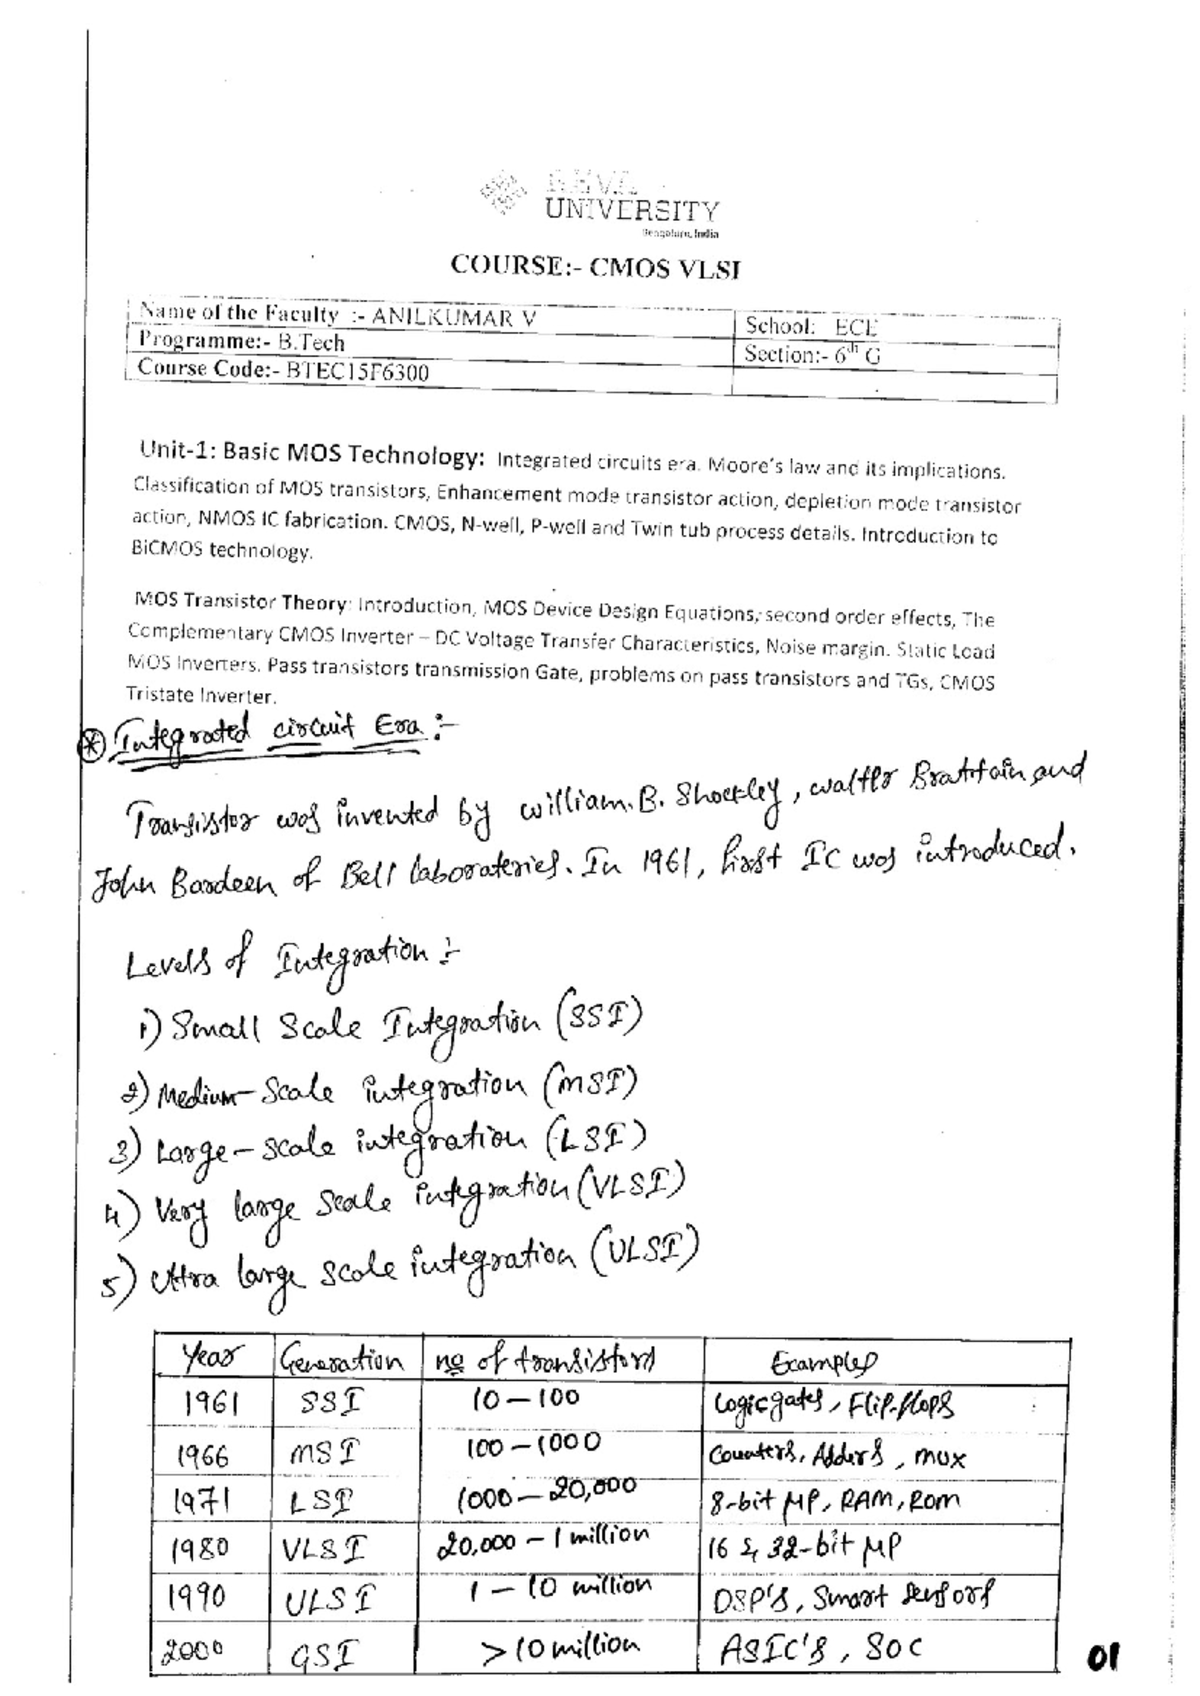 REVA
UNIVERSITY
Bengaluru, India
COURSE:- CMOS VLSI
Name of the Faculty :- ANILKUMAR V
School: ECE
Programme:- B.Tech
Section:- 6th G
Course Code:- BTEC15F6300
Unit-1: Basic MOS Technology: Integrated circuits era. Moore's law and its implications.
Classification of MOS transistors, Enhancement mode transistor action, depletion mode transistor
action, NMOS IC fabrication. CMOS, N-well, P-well and Twin tub process details. Introduction to
BiCMOS technology.
MOS Transistor Theory: Introduction, MOS Device Design Equations, second order effects, The
Complementary CMOS Inverter – DC Voltage Transfer Characteristics, Noise margin. Static Load
MOS Inverters. Pass transistors transmission Gate, problems on pass transistors and TGs, CMOS
Tristate Inverter.
* Integrated circuit Era :-
Transistor was invented by William. B. Shockley, Walter Brattain and
John Bardeen of Bell laboratories. In 1961, first IC was introduced.
Levels of Integration :-
1) Small Scale Integration (SSI)
2) Medium-Scale integration (MSI)
3) Large-scale integration (LSI)
4) Very large scale integration (VLSI)
5) Ultra large scale integration (ULSI)
Year Generation no of transistors Examples
1961 SSI 10 – 100 Logicgates, Flip-flops
1966 MSI 100 – 1000 Counters, Adders, mux
1971 LSI 1000 – 20,000 8-bit μP, RAM, Rom
1980 VLSI 20,000 – 1 million 16 & 32-bit μP
1990 ULSI 1 – 10 million DSP's, Smart sensors
2000 GSI >10 million ASIC's, SOC
01